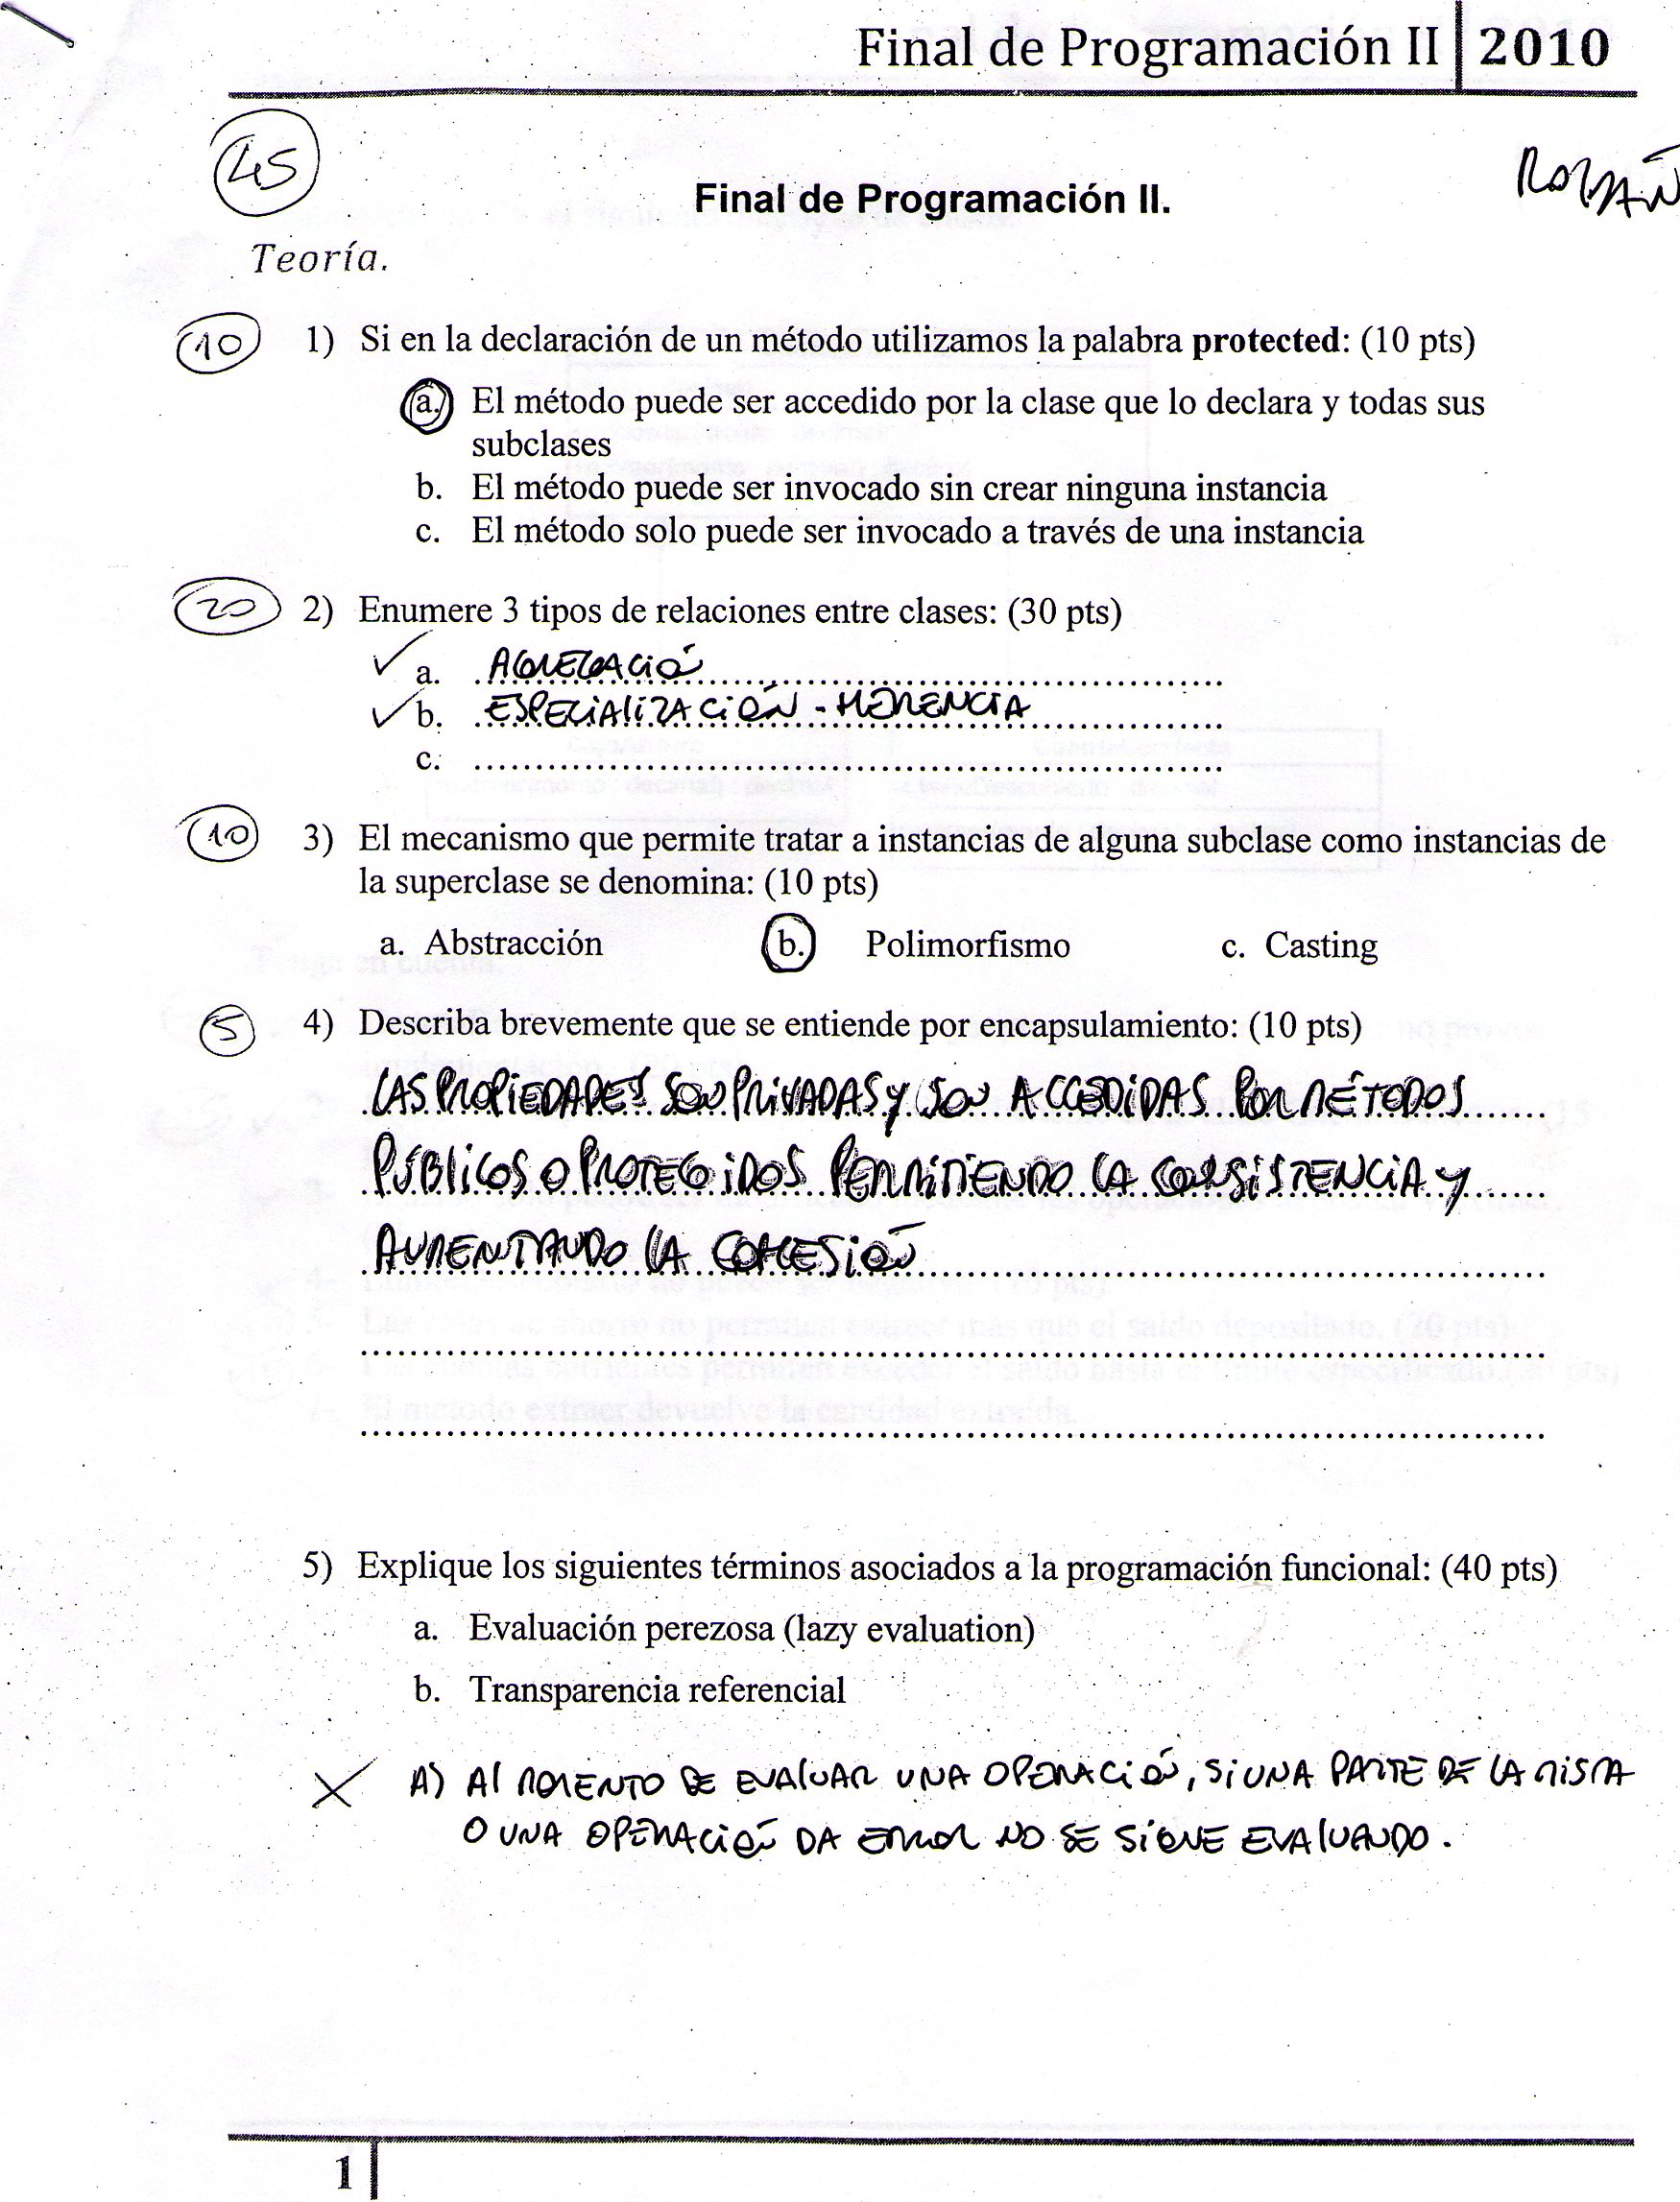 Final de Programación II 2010
45
Final de Programación II.
Teoría.
10 1) Si en la declaración de un método utilizamos la palabra protected: (10 pts)
a. El método puede ser accedido por la clase que lo declara y todas sus
subclases
b. El método puede ser invocado sin crear ninguna instancia
c. El método solo puede ser invocado a través de una instancia
20 2) Enumere 3 tipos de relaciones entre clases: (30 pts)
✓ a. AGREGACIÓN
✓ b. ESPECIALIZACIÓN - HERENCIA
c.
10 3) El mecanismo que permite tratar a instancias de alguna subclase como instancias de
la superclase se denomina: (10 pts)
a. Abstracción b. Polimorfismo c. Casting
5 4) Describa brevemente que se entiende por encapsulamiento: (10 pts)
LAS PROPIEDADES SON PRIVADAS Y SON ACCEDIDAS POR MÉTODOS
PÚBLICOS O PROTEGIDOS PERMITIENDO LA CONSISTENCIA Y
AUMENTANDO LA COHESIÓN
5) Explique los siguientes términos asociados a la programación funcional: (40 pts)
a. Evaluación perezosa (lazy evaluation)
b. Transparencia referencial
X A) Al MOMENTO DE EVALUAR UNA OPERACIÓN, SI UNA PARTE DE LA MISMA
O UNA OPERACIÓN DA ERROR NO SE SIGUE EVALUANDO.
1